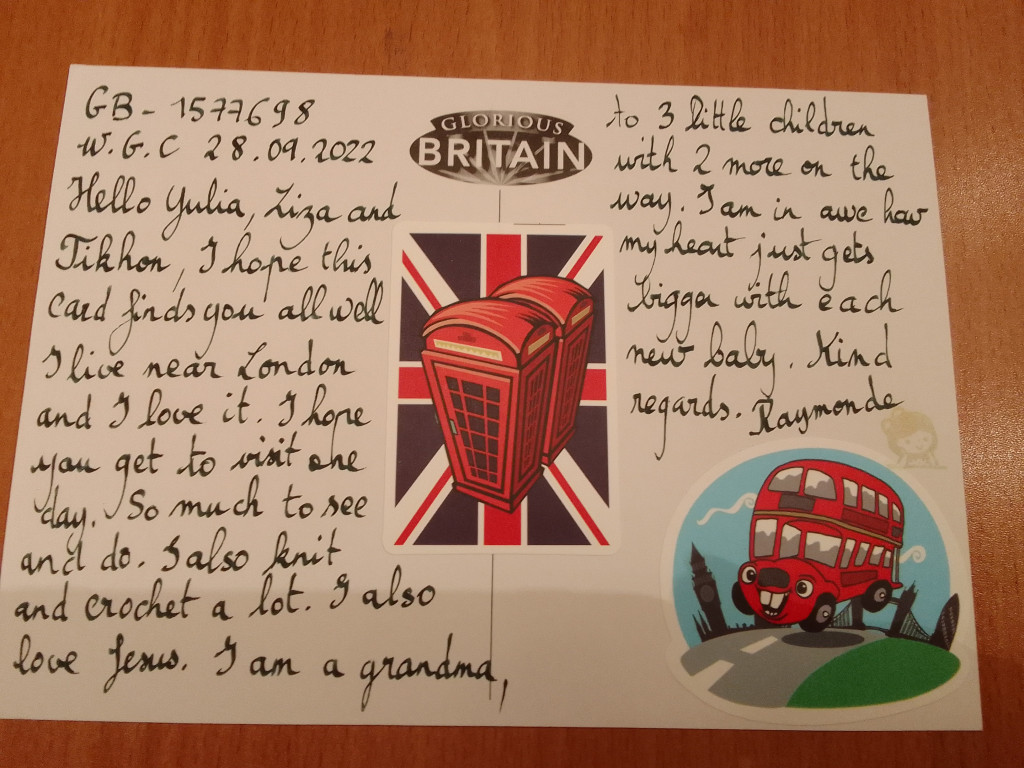 GB - 1577698
W.G.C 28.09.2022
Hello Yulia, Liza and
Tikhon, I hope this
card finds you all well
I live near London
and I love it. I hope
you get to visit one
day. So much to see
and do. I also knit
and crochet a lot. I also
love Jesus. I am a grandma,
GLORIOUS
BRITAIN
to 3 little children
with 2 more on the
way. I am in awe how
my heart just gets
bigger with each
new baby. Kind
regards. Raymonde